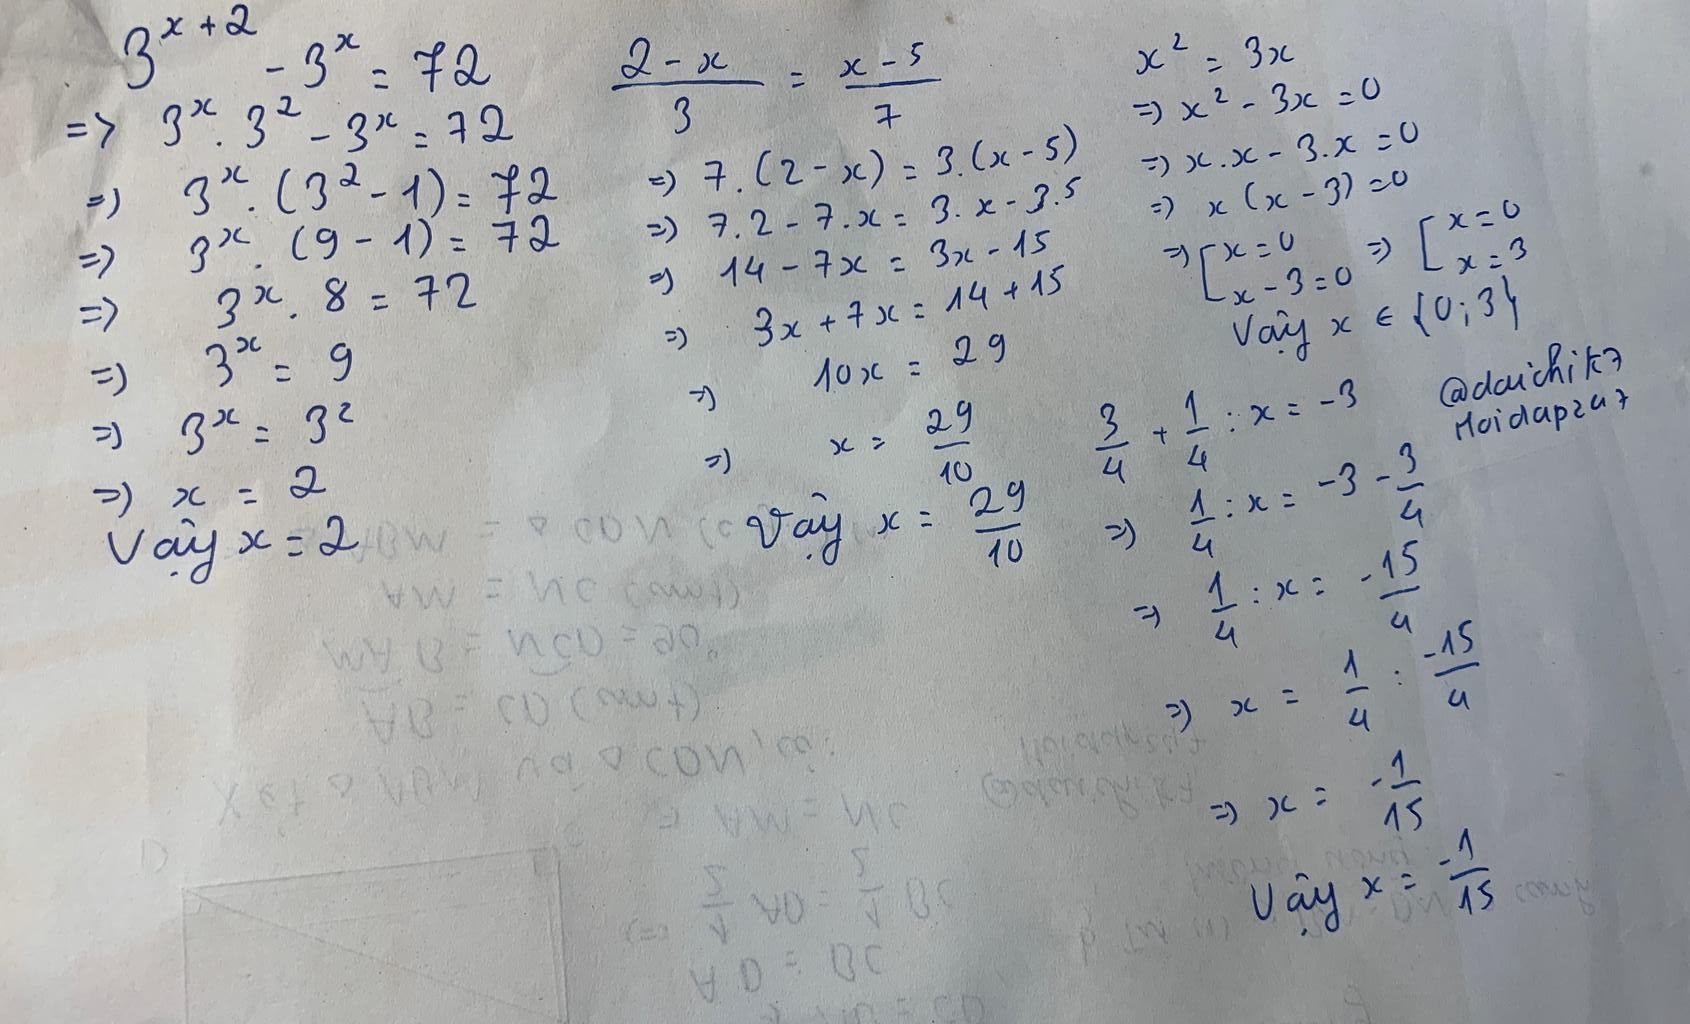 3^{x+2} - 3^x = 72
=> 3^x . 3^2 - 3^x = 72
=> 3^x . (3^2 - 1) = 72
=> 3^x . (9 - 1) = 72
=> 3^x . 8 = 72
=> 3^x = 9
=> 3^x = 3^2
=> x = 2
Vậy x = 2
\frac{2-x}{3} = \frac{x-5}{7}
=> 7.(2-x) = 3.(x-5)
=> 7.2 - 7.x = 3.x - 3.5
=> 14 - 7x = 3x - 15
=> 3x + 7x = 14 + 15
=> 10x = 29
=> x = \frac{29}{10}
Vậy x = \frac{29}{10}
x^2 = 3x
=> x^2 - 3x = 0
=> x.x - 3.x = 0
=> x(x-3) = 0
=> [x=0 => [x=0
x-3=0 x=3
Vậy x ∈ {0;3}
@daichik7
Hoidap247
\frac{3}{4} + \frac{1}{4} : x = -3
=> \frac{1}{4} : x = -3 - \frac{3}{4}
=> \frac{1}{4} : x = \frac{-15}{4}
=> x = \frac{1}{4} : \frac{-15}{4}
=> x = \frac{-1}{15}
Vậy x = \frac{-1}{15}